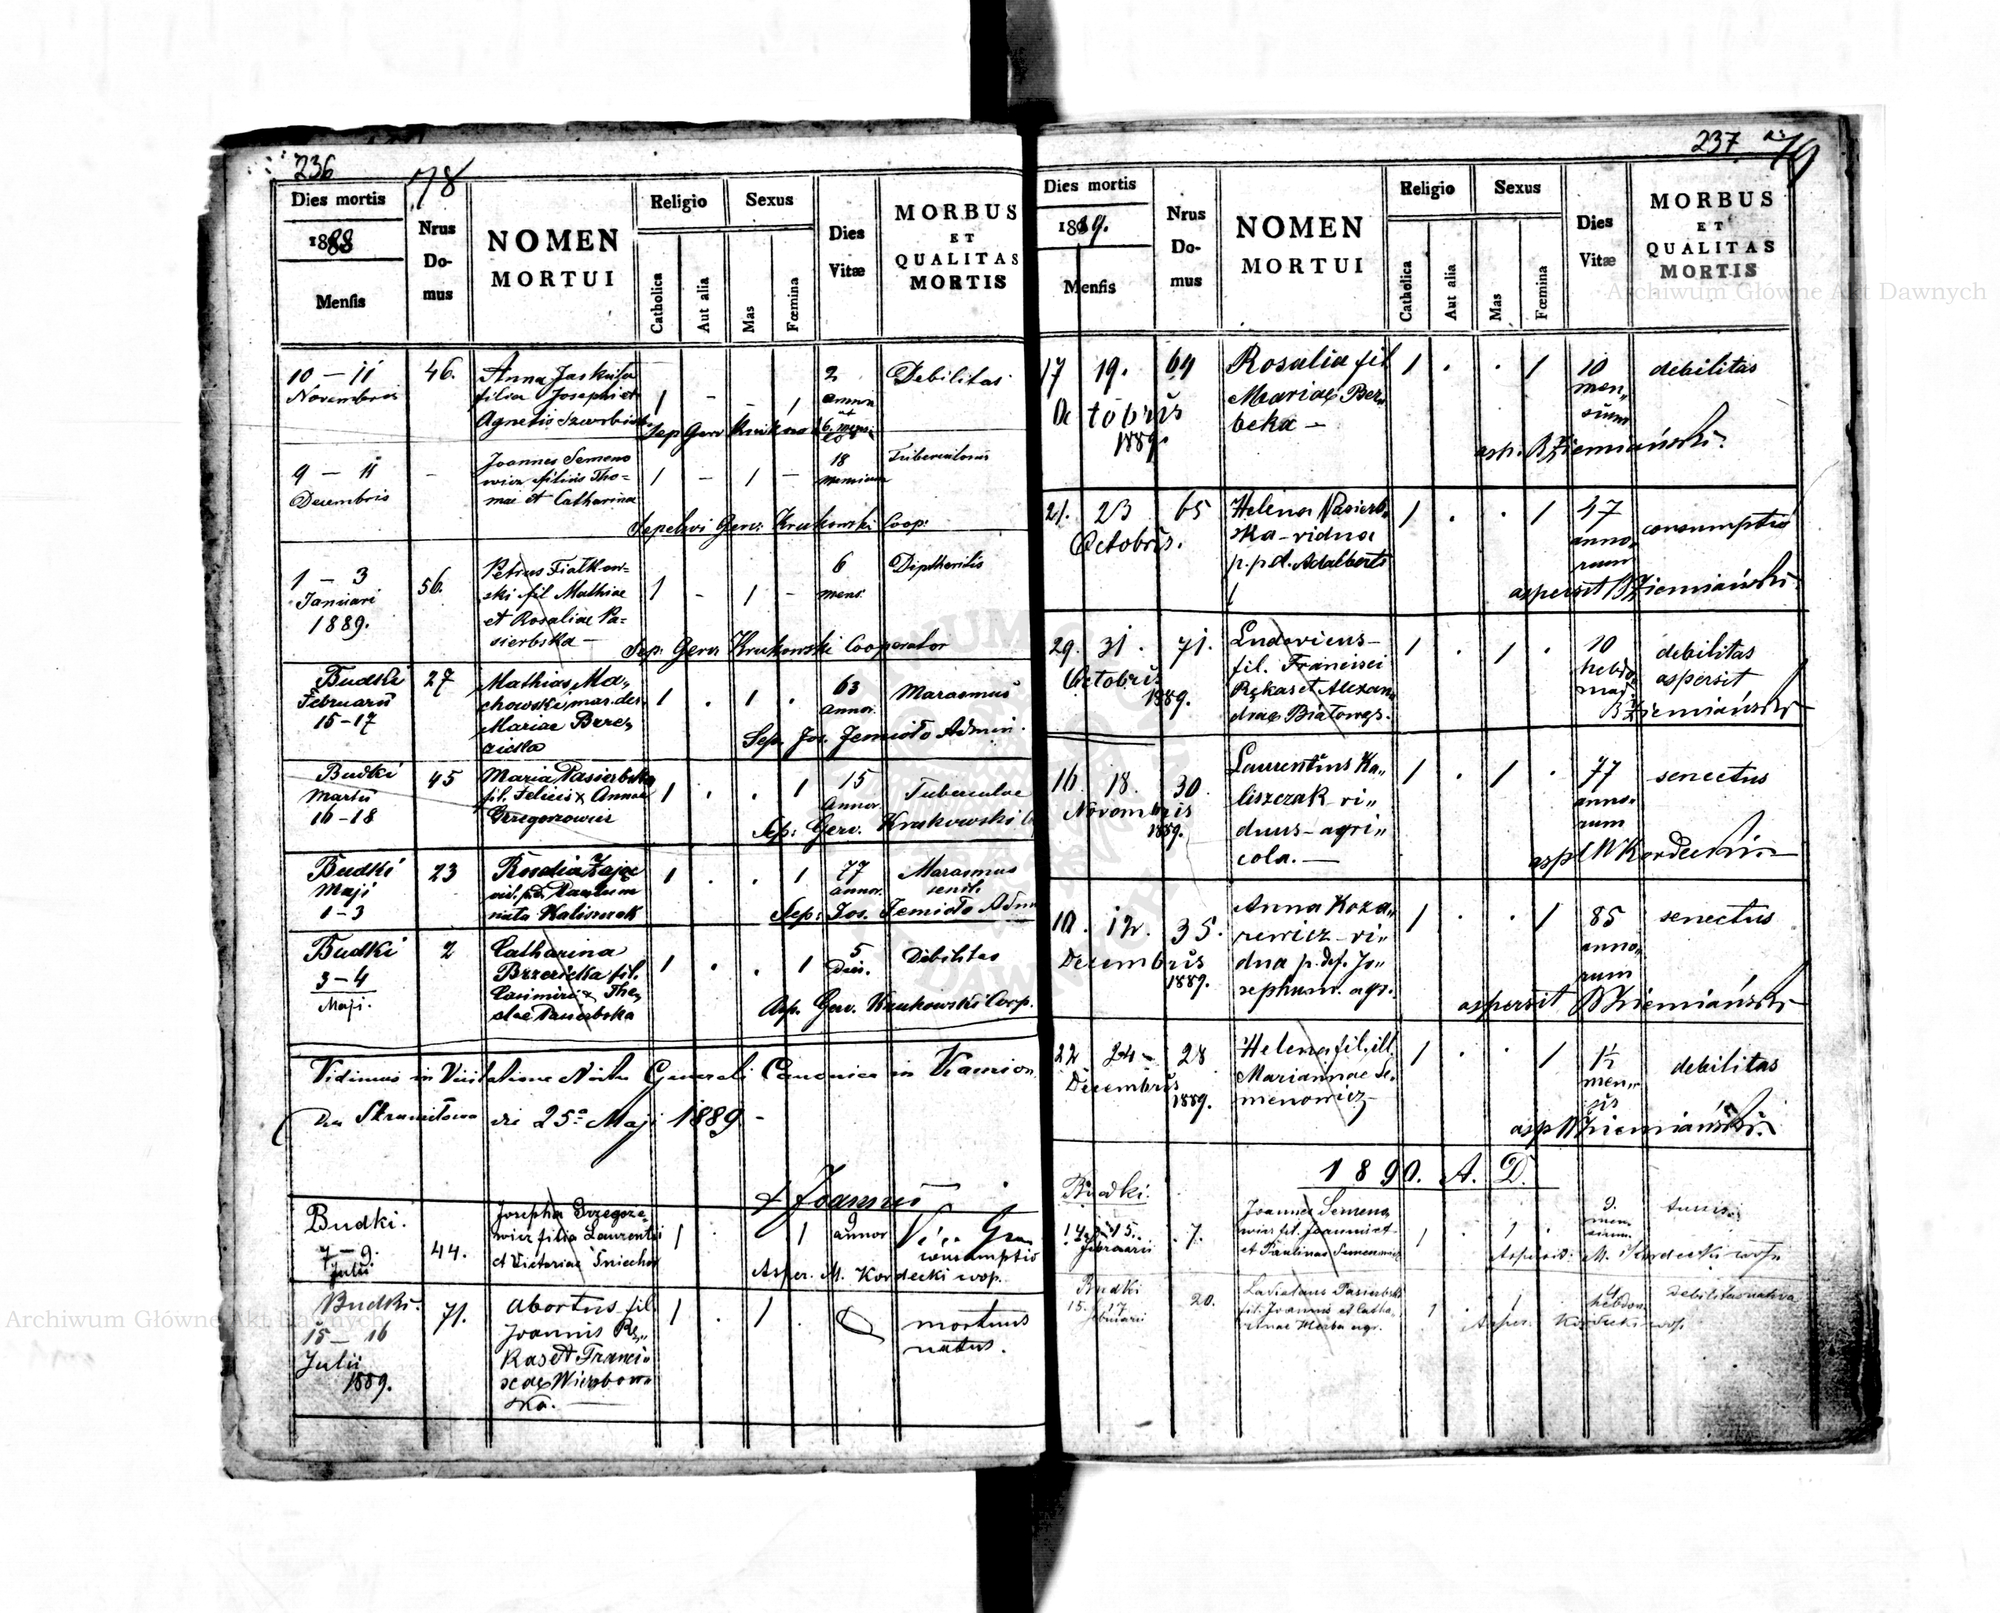 236
78
Dies mortis
1888
Mensis
Nrus Do- mus
NOMEN
MORTUI
Religio
Catholica
Aut alia
Sexus
Mas
Fœmina
Dies
Vitæ
MORBUS
ET
QUALITAS
MORTIS
10 – 11
Novembris
46.
Anna
filia Josephi et
Agnetis
1 - - 1
2
Debilitas
Sep Gerv
9 – 11
Decembris
-
Joannes Semeno
wicz filius Tho-
mae et Catharina
1 - 1 -
18
mensium
Sepelivi Gerv: Krukowski Coop:
1 – 3
Januari
1889.
56.
Petrus Fiałkow-
ski fil Mathiae
et Rosaliae Pa-
sierbska —
1 - 1 -
6
mens:
Diphtheritis
Sep: Gerv Krukowski Cooperator
Budki
Februarii
15-17
27
Mathias Ma„
chowski, mar. des.
Mariae Brze„
zicka
1 . 1 .
63
annor.
Marasmus
Sep. Jos. Jemioło Admin.
Budki
Martii
16-18
45
Maria Pasierbska
fil. Felicis & Annae
Grzegorzowicz
1 . . 1
15
Annor.
Tuberculae
Sep: Gerv. Krukowski
Budki
Maji
1-3
23
Rosalia Zając
vid. p.d.
nata Kaliszczak
1 . . 1
77
annor.
Marasmus
senil.
Sep: Jos. Jemioło Adm
Budki
3-4
Maji.
2
Catharina
Brzezicka fil.
Casimiri & The„
clae Pasierbska
1 . . 1
5
Dies.
Debilitas
Asp. Gerv. Krukowski Coop.
Vidimus in Visitatione Nostra Generali Canonica in Kamion
ka Strumiłowa die 25a Maji 1889 -
† Joannes
Budki.
7 – 9.
Julii
44.
Josepha Grzegorze„
wicz filia Laurentii
et Victoriae
1 1
9
annor
consumptio
Asper. M. Kordecki coop.
Budki.
15 – 16
Julii
1889.
71.
Abortus fil.
Joannis Rę„
kas et Franci„
scae Wierzbow„
ska.
1 . 1 .
mortuus
natus.
237
79
Dies mortis
1889.
Mensis
Nrus
Do-
mus
NOMEN
MORTUI
Religio
Catholica
Aut alia
Sexus
Mas
Fœmina
Dies
Vitæ
MORBUS
ET
QUALITAS
MORTIS
17 19.
Octobris
1889.
69
Rosalia fil
Mariae Ber„
beka —
1 . . 1
10
men„
sium
debilitas
asp. B Ziemiański.
21. 23
Octobris.
65
Helena Pasierb„
ska - vidua
p.p.d. Adalberti
1 . . 1
47
anno„
rum
consumptio
aspersit B Ziemiański.
29. 31.
Octobris
1889.
71.
Ludovicus -
fil. Francisci
Rękas et Alexan„
drae Białowąs.
1 . 1 .
10
hebdo„
mad.
debilitas
aspersit
B Ziemiański
16 18.
Novembris
1889.
30.
Laurentius Ka„
liszczak vi„
duus - agri„
cola. —
1 . 1 .
77
anno„
rum
senectus
asp M Kordecki
10. 12.
Decembris
1889.
35.
Anna Koza„
rewicz - vi„
dua p. def. Jo„
sephum. agr.
1 . . 1
85
anno„
rum
senectus
aspersit B Ziemiański
22 24 -
Decembris
1889.
28
Helena fil. ill.
Mariannae Se„
menowicz -
1 . . 1
1½
men„
sis
debilitas
asp B Ziemiański.
1890. A. D.
Budki.
15.
Februarii
7.
Joannes Semeno
wicz fil. Joannis et
et Paulinae Semenowicz
1 . 1 .
9.
men„
sium.
tussis.
Aspersit: M. Kordecki coop
Budki
15. 17.
Februarii
20.
Ladislaus Pasierbski
fil. Joannis et Catha„
rinae agr.
1 . 1
4
hebdom.
Debilitas nativa
Asper. Kordecki coop.
Archiwum Główne Akt Dawnych
Archiwum Główne Akt Dawnych